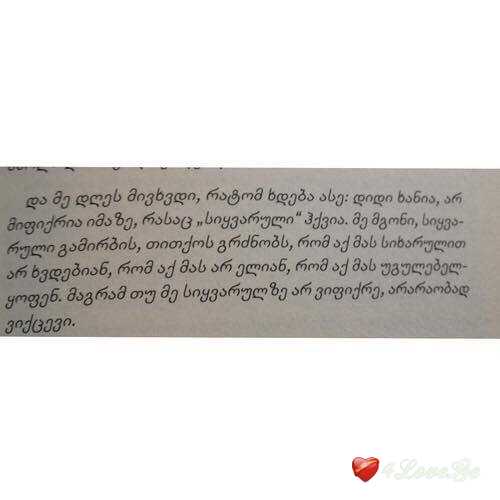 და მე დღეს მივხვდი, რატომ ხდება ასე: დიდი ხანია, არ
მიფიქრია იმაზე, რასაც „სიყვარული“ ჰქვია. მე მგონი, სიყვა-
რული გამირბის, თითქოს გრძნობს, რომ აქ მას სიხარულით
არ ხვდებიან, რომ აქ მას არ ელიან, რომ აქ მას უგულებელ-
ყოფენ. მაგრამ თუ მე სიყვარულზე არ ვიფიქრე, არარაობად
ვიქცევი.
4Love.Ge